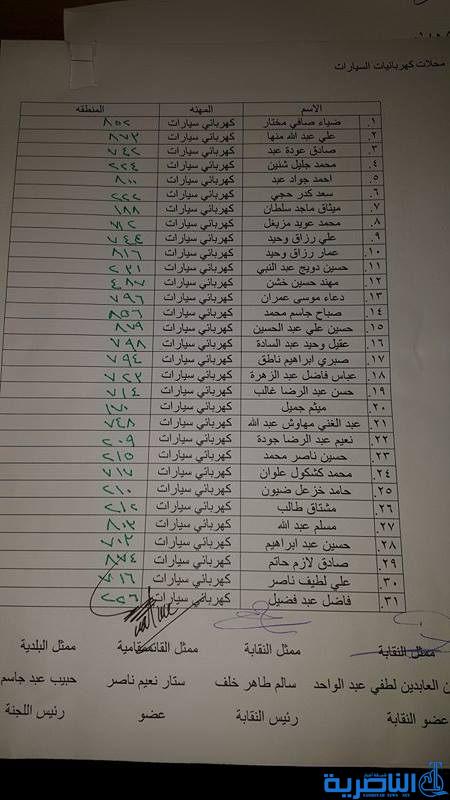 محلات كهربائيات السيارات
الاسم المهنه المنطقه
١. ضياء صافي مختار كهربائي سيارات ٨٥٢
٢. علي عبد الله منها كهربائي سيارات ٨٧٣
٣. صادق عودة عبد كهربائي سيارات ٧٤٢
٤. محمد جليل شنين كهربائي سيارات ٢٢٤
٥. احمد جواد عبد كهربائي سيارات ٨٠٠
٦. سعد كدر حجي كهربائي سيارات ٢٢٢
٧. ميثاق ماجد سلطان كهربائي سيارات ١٨٨
٨. محمد عويد مزيعل كهربائي سيارات ٧١٢
٩. علي رزاق وحيد كهربائي سيارات ٧٤٤
١٠. عمار رزاق وحيد كهربائي سيارات ٨١٦
١١. حسين دويج عبد النبي كهربائي سيارات ٢٣١
١٢. مهند حسين خشن كهربائي سيارات ٤٨٧
١٣. دعاء موسى عمران كهربائي سيارات ٧٩٦
١٤. صباح جاسم محمد كهربائي سيارات ٨٥٦
١٥. حسين علي عبد الحسين كهربائي سيارات ٨٧٩
١٦. عقيل وحيد عبد السادة كهربائي سيارات ٧٩٨
١٧. صبري ابراهيم ناطق كهربائي سيارات ٧٩٤
١٨. عباس فاضل عبد الزهرة كهربائي سيارات ٧٢٣
١٩. حسن عبد الرضا غالب كهربائي سيارات ٧١٤
٢٠. ميثم جميل كهربائي سيارات ١٧٠
٢١. عبد الغني مهاوش عبد الله كهربائي سيارات ٧٤٨
٢٢. نعيم عبد الرضا جودة كهربائي سيارات ٢٠٩
٢٣. حسين ناصر محمد كهربائي سيارات ٢١٥
٢٤. محمد كشكول علوان كهربائي سيارات ٧١٧
٢٥. حامد خزعل ضيون كهربائي سيارات ٢١٠
٢٦. مشتاق طالب كهربائي سيارات ٢١٢
٢٧. مسلم عبد الله كهربائي سيارات ٨٠٣
٢٨. حسين عبد ابراهيم كهربائي سيارات ٧٠٢
٢٩. صادق لازم حاتم كهربائي سيارات ٨٧٤
٣٠. علي لطيف ناصر كهربائي سيارات ٢١٦
٣١. فاضل عبد فضيل كهربائي سيارات ٢٢٦
ممثل النقابة ممثل النقابة ممثل القائمقامية ممثل البلدية
ن العابدين لطفي عبد الواحد سالم طاهر خلف ستار نعيم ناصر حبيب عبد جاسم
عضو النقابة رئيس النقابة عضو رئيس اللجنة
شبكة أخبار
الناصرية